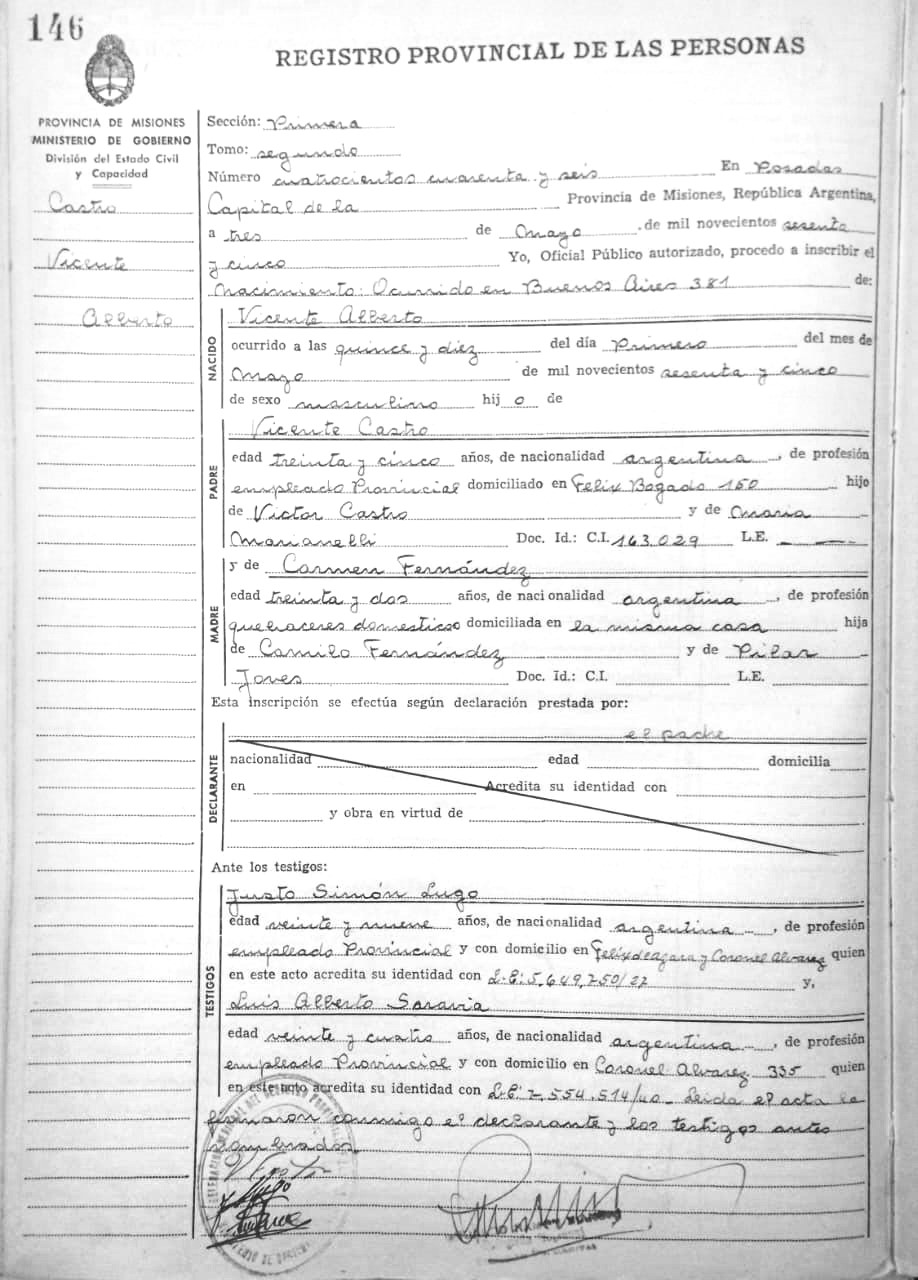 146
REGISTRO PROVINCIAL DE LAS PERSONAS
PROVINCIA DE MISIONES
MINISTERIO DE GOBIERNO
División del Estado Civil
y Capacidad
Castro
Vicente
Alberto
Sección: Primera
Tomo: segundo
Número cuatrocientos cuarenta y seis En Posadas
Capital de la Provincia de Misiones, República Argentina,
a tres de Mayo de mil novecientos sesenta
y cinco Yo, Oficial Público autorizado, procedo a inscribir el
Nacimiento: Ocurrido en Buenos Aires 381 de:
NACIDO
Vicente Alberto
ocurrido a las quince y diez del día Primero del mes de
Mayo de mil novecientos sesenta y cinco
de sexo masculino hij o de
PADRE
Vicente Castro
edad treinta y cinco años, de nacionalidad argentina, de profesión
empleado Provincial domiciliado en Felix Bogado 160 hijo
de Victor Castro y de Maria
Marianelli Doc. Id.: C.I. 163.029 L.E. —
MADRE
y de Carmen Fernández
edad treinta y dos años, de nacionalidad argentina, de profesión
quehaceres domesticos domiciliada en la misma casa hija
de Camilo Fernández y de Pilar
Joves Doc. Id.: C.I. L.E.
Esta inscripción se efectúa según declaración prestada por:
DECLARANTE
el padre
nacionalidad edad domicilia
en Acredita su identidad con
y obra en virtud de
Ante los testigos:
TESTIGOS
Justo Simón Lugo
edad veinte y nueve años, de nacionalidad argentina, de profesión
empleado Provincial y con domicilio en Felix de Azara y Coronel Alvarez quien
en este acto acredita su identidad con L.E: 5.649.250/27 y,
Luis Alberto Saravia
edad veinte y cuatro años, de nacionalidad argentina, de profesión
empleado Provincial y con domicilio en Coronel Alvarez 335 quien
en este acto acredita su identidad con L.E: 7.554.514/40. Leida el acta la
firmaron conmigo el declarante y los testigos antes
nombrados.